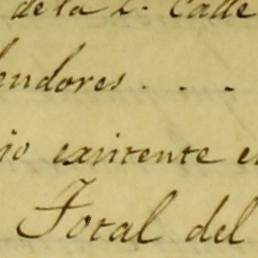 de la C. Calle
endores . . .
io existente e
Total del